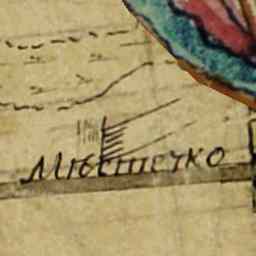 Мѣстечко